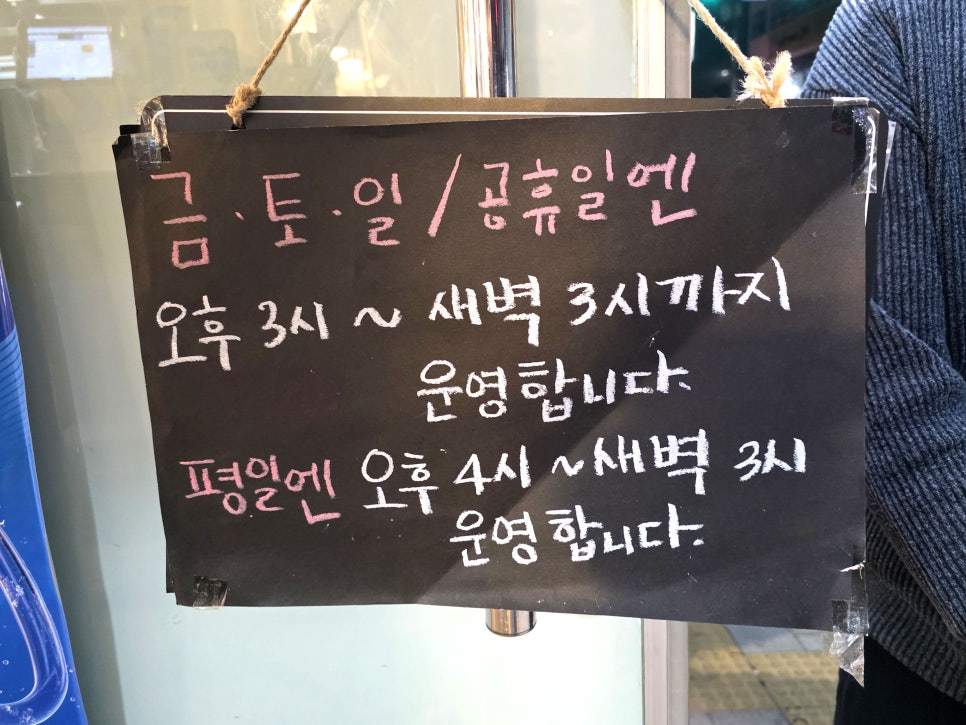 금·토·일/공휴일엔
오후 3시 ~ 새벽 3시까지
운영합니다.
평일엔 오후 4시 ~ 새벽 3시
운영합니다.